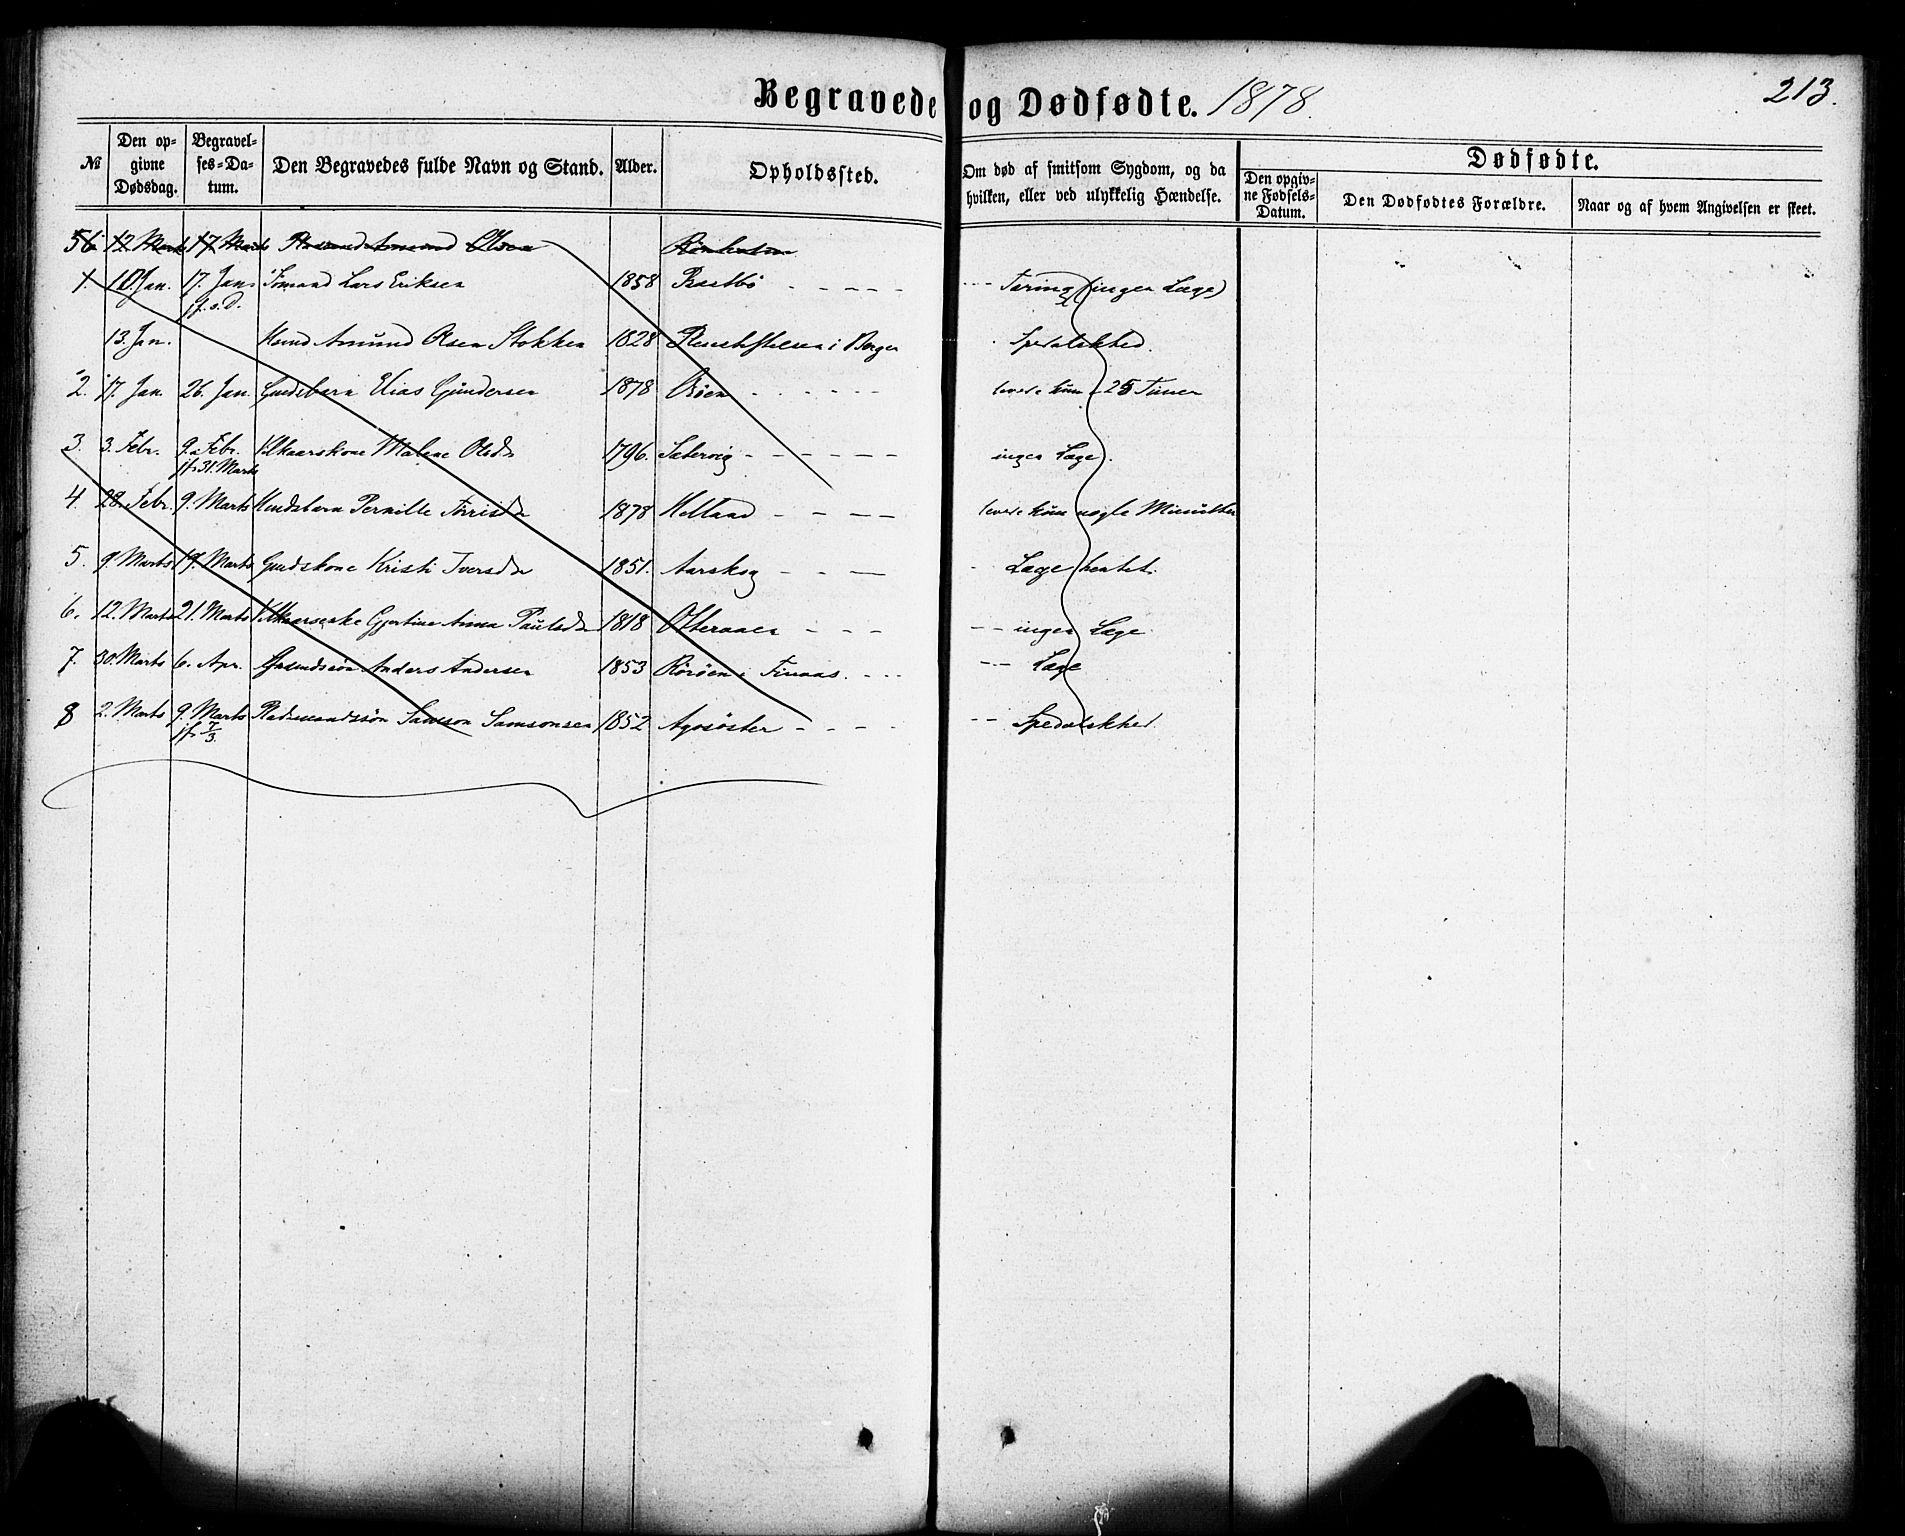 Begravede og Dødfødte. 1878. 213.
№ Den opgivne Dødsdag. Begravelses-Datum. Den Begravedes fulde Navn og Stand. Alder. Opholdssted. Om død af smitsom Sygdom, og da hvilken, eller ved ulykkelig Hændelse. Dødfødte.
Den opgivne Fødsels-Datum. Den Dødfødtes Forældre. Naar og af hvem Angivelsen er skeet.
56 12 Marts 17 Marts Amund Olsen
1. 10. Jan. 17. Jan. Lars Eriksen 1858 - - - - - - - - Tæring (ingen Læge)
jf. s. D.
13. Jan. Amund Olsen Stokken 1828 Pleiestiftelsen i Bergen Spedalskhed.
2. 17. Jan. 26. Jan. Gaardsbarn Elias Gundersen 1878 - - - - - levede kun 25 Timer
3. 3. Febr. 9. Febr. Vilkaarskone Malene Olsdr 1796. Sætervig - - - - - - ingen Læge.
jf. 31. Marts
4. 28. Febr. 9. Marts Pernille 1878 Helland - - - - levede kun nogle Minutter
5. 9. Marts 19. Marts Gaardskone Kristi Iversdr 1851. Aarskog - - - Læge hentet.
6. 12. Marts 21. Marts Gjertine Anna Paulsdr 1818 - - - - - ingen Læge.
7. 30. Marts 6. Apr. Anders Andersen 1853 Rørøen i Finaas. - - - - - Læge
8 2. Marts 9. Marts Pladsmandssøn Samson Samsonsen 1852 Agasøster - - - - - - Spedalskhed.
jf. 7/3.